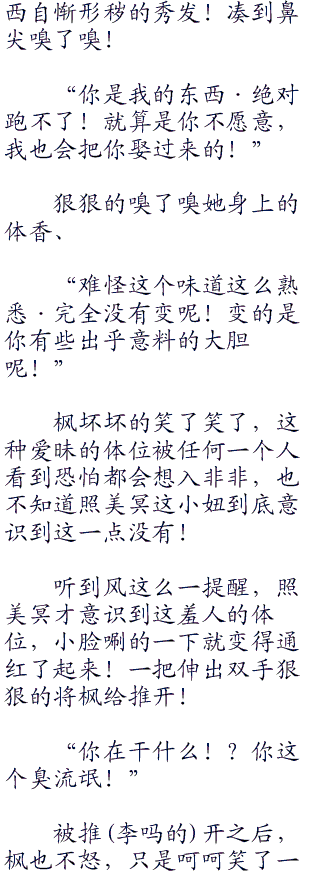 西自惭形秽的秀发！凑到鼻
尖嗅了嗅！
“你是我的东西·绝对
跑不了！就算是你不愿意，
我也会把你娶过来的！”
狠狠的嗅了嗅她身上的
体香、
“难怪这个味道这么熟
悉·完全没有变呢！变的是
你有些出乎意料的大胆
呢！”
枫坏坏的笑了笑了，这
种爱昧的体位被任何一个人
看到恐怕都会想入非非，也
不知道照美冥这小妞到底意
识到这一点没有！
听到风这么一提醒，照
美冥才意识到这羞人的体
位，小脸唰的一下就变得通
红了起来！一把伸出双手狠
狠的将枫给推开！
“你在干什么！？你这
个臭流氓！”
被推(李吗的)开之后，
枫也不怒，只是呵呵笑了一